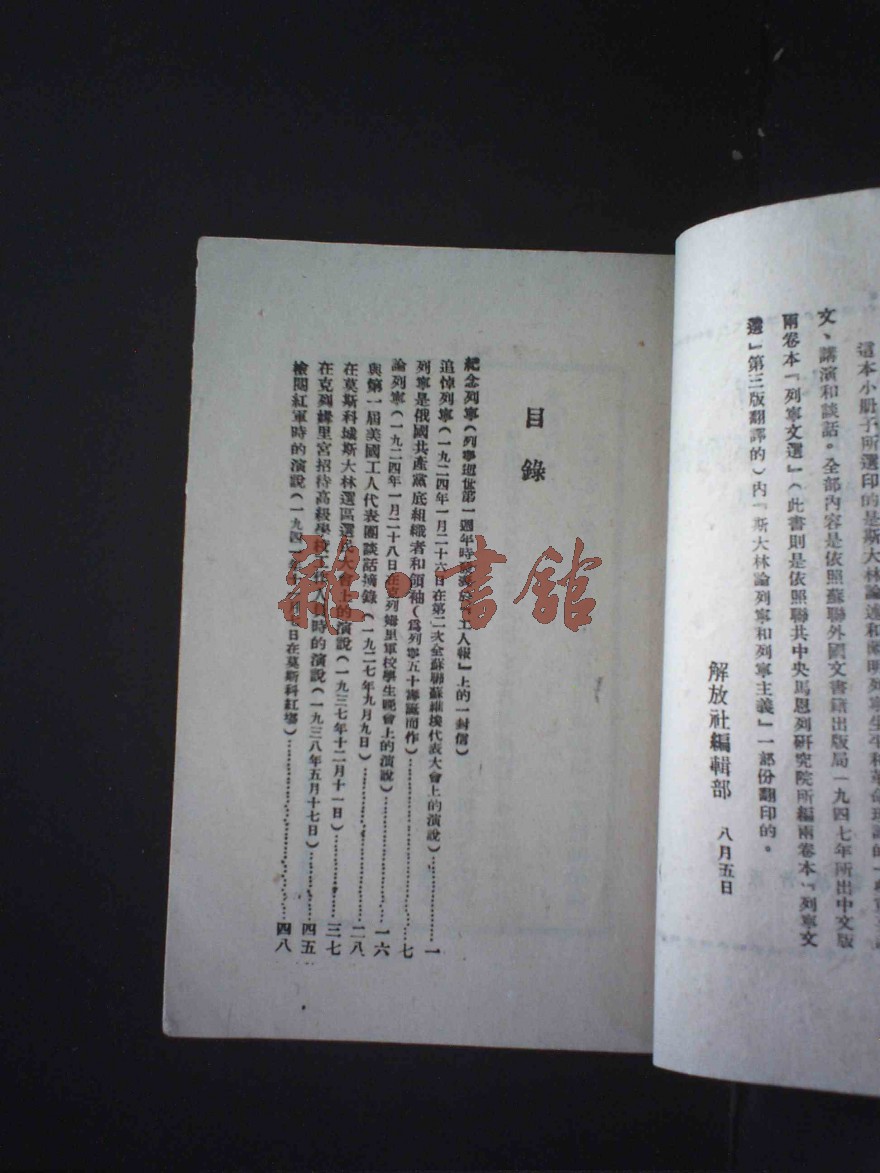 這本小册子所選印的是斯大林論述和闡明列寧生平和革命理論的
文、講演和談話。全部內容是依照蘇聯外國文書籍出版局一九四七年所出中文版
兩卷本『列寧文選』(此書則是依照聯共中央馬恩列研究院所編兩卷本『列寧文
選』第三版翻譯的)內『斯大林論列寧和列寧主義』一部份翻印的。
解放社編輯部 八月五日
目錄
紀念列寧(列寧逝世第一週年時『工人報』上的一封信)
追悼列寧(一九二四年一月二十六日在第二次全蘇聯蘇維埃代表大會上的演說)……一
列寧是俄國共產黨底組織者和領袖(為列寧五十壽誕而作)……七
論列寧(一九二四年一月二十八日在克列姆里軍校學生晚會上的演說)……一六
與第一屆美國工人代表團談話摘錄(一九二七年九月九日)……二八
在莫斯科城斯大林選區選民大會上的演說(一九三七年十二月十一日)……三七
在克列姆里宮招待高級學校工作人員時的演說(一九三八年五月十七日)……四五
檢閱紅軍時的演說(一九四一年 月七日在莫斯科紅場)……四八
雜·書館